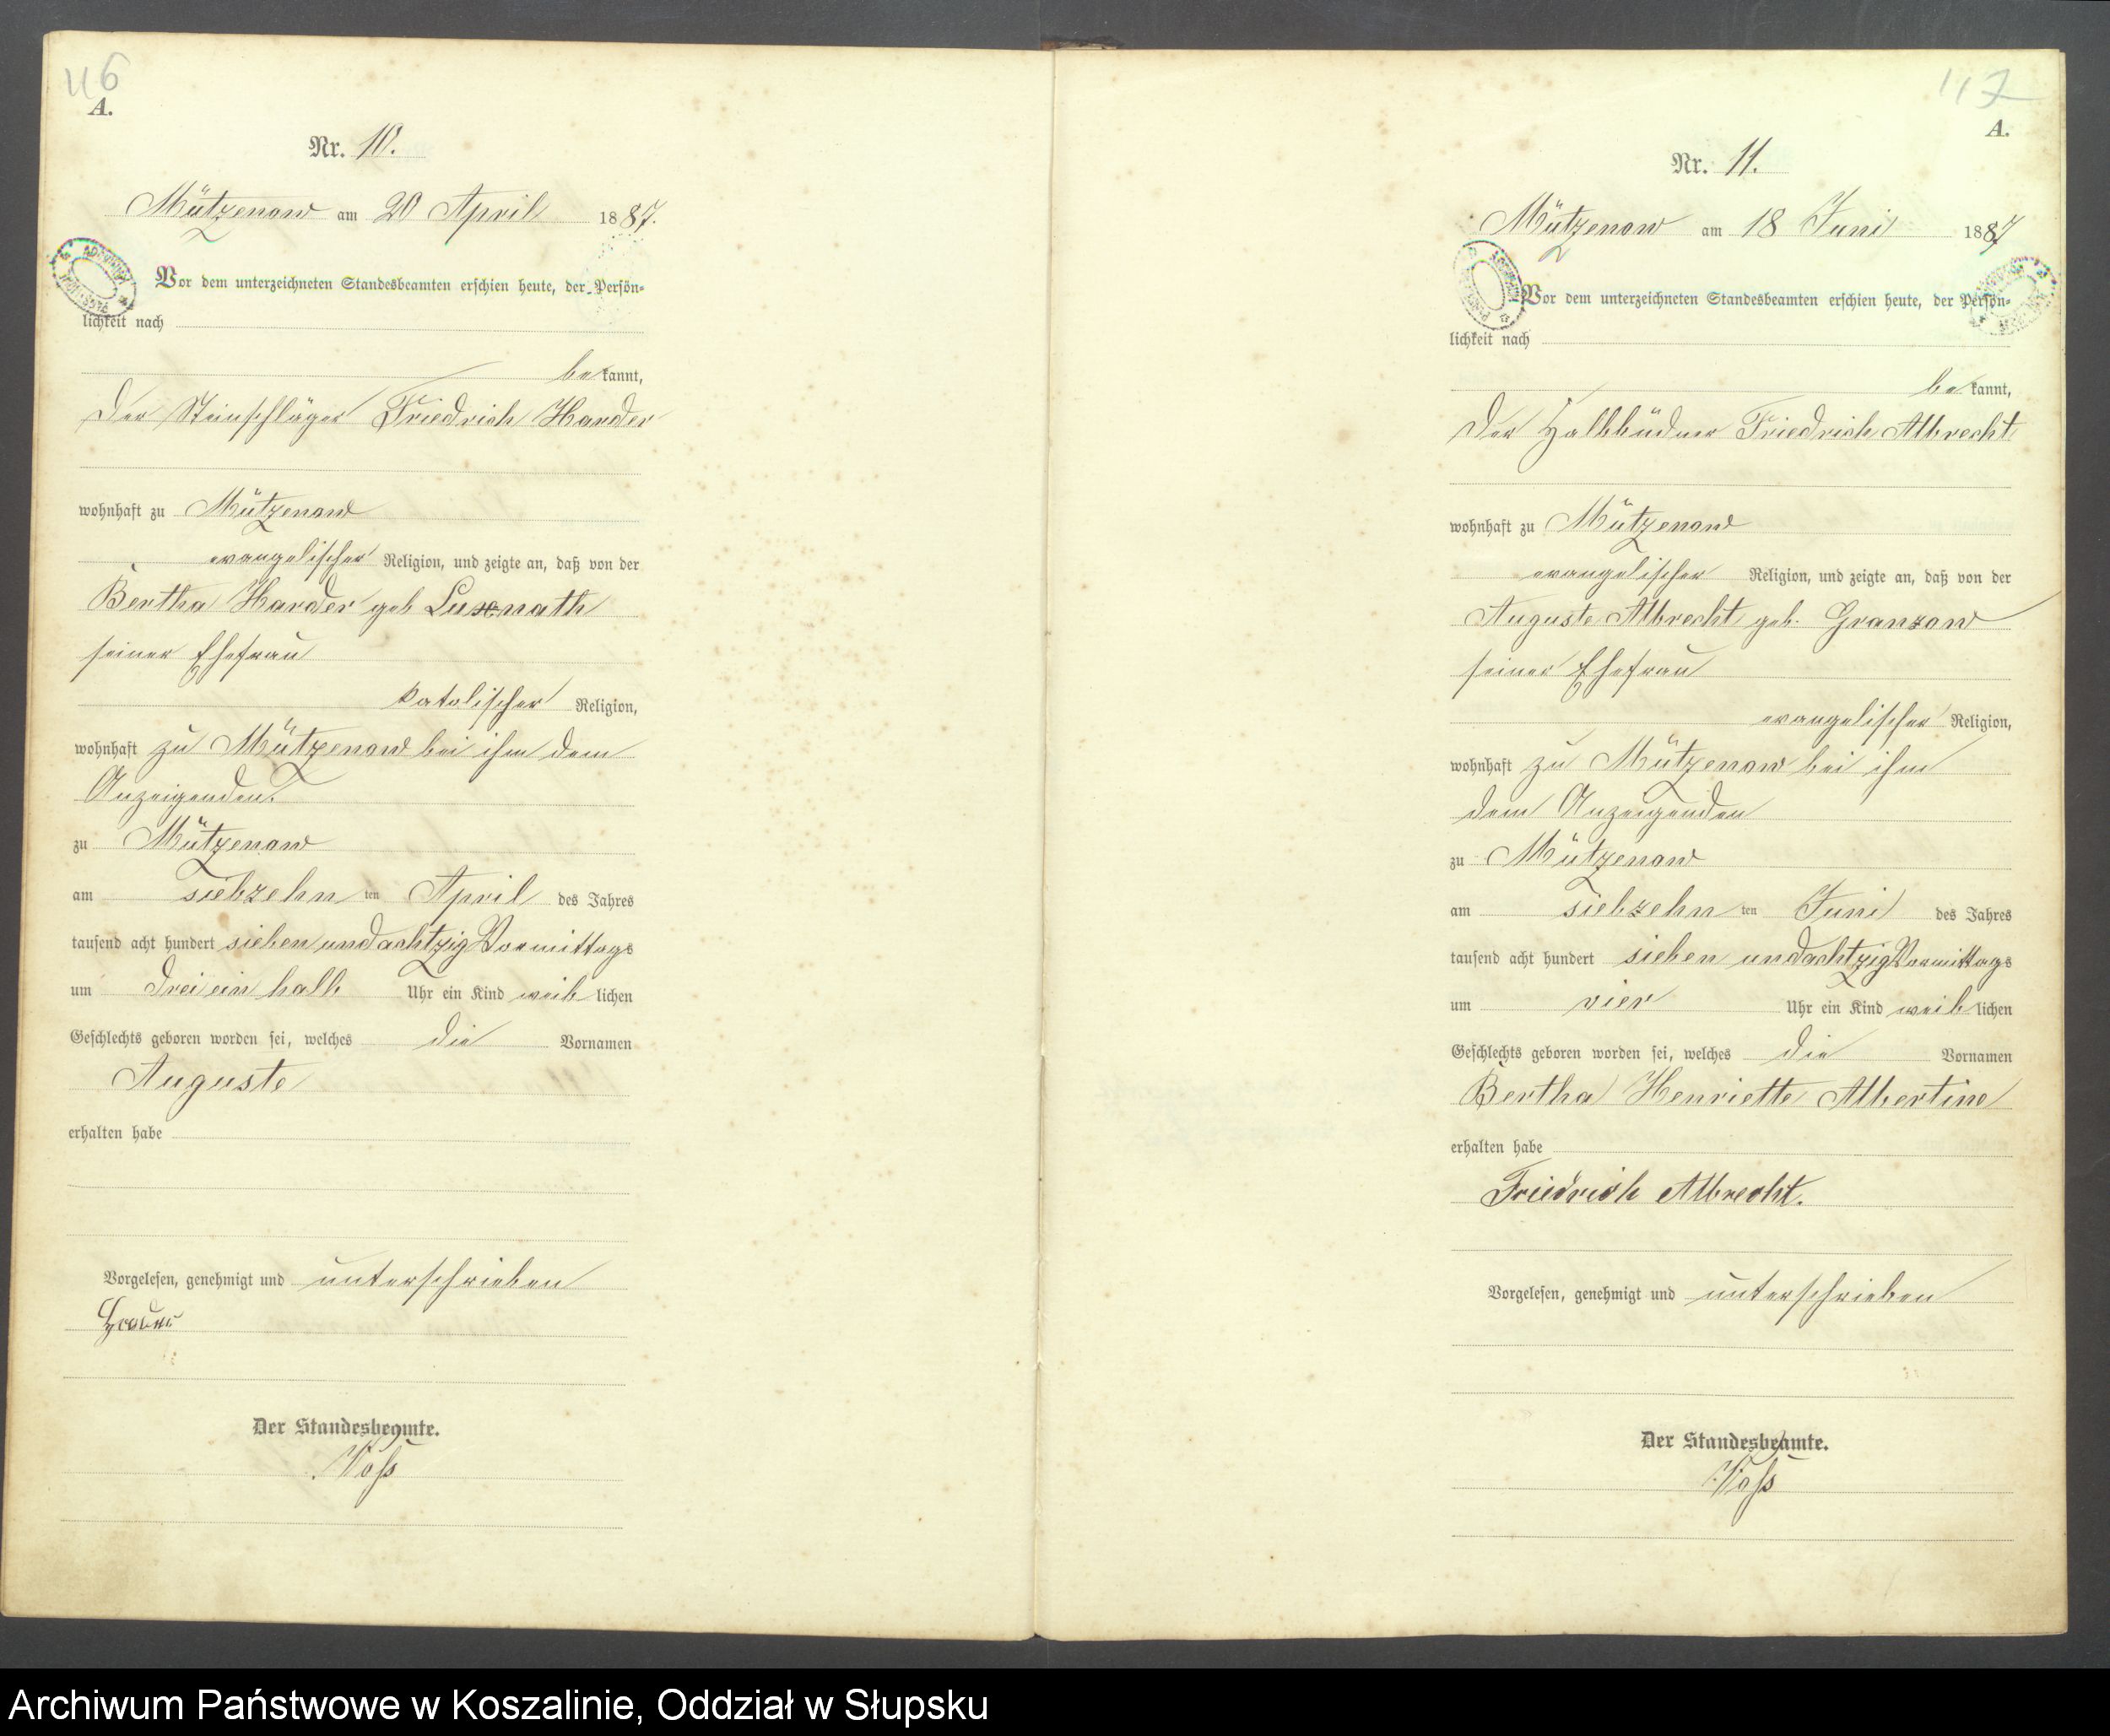 116
A.
Nr. 10.
Mützenow am 20 April 1887.
Vor dem unterzeichneten Standesbeamten erschien heute, der Persön-
lichkeit nach
bekannt,
der Steinschläger Friedrich Harder
wohnhaft zu Mützenow
evangelischer Religion, und zeigte an, daß von der
Bertha Harder geb
seiner Ehefrau
katolischer Religion,
wohnhaft zu Mützenow bei ihm dem
Anzeigenden.
zu Mützenow
am siebzehnten April des Jahres
tausend acht hundert sieben und achtzig Vormittags
um drei ein halb Uhr ein Kind weiblichen
Geschlechts geboren worden sei, welches die Vornamen
Auguste
erhalten habe
Vorgelesen, genehmigt und unterschrieben
Der Standesbeamte.
Voß
117
A.
Nr. 11.
Mützenow am 18 Juni 1887
Vor dem unterzeichneten Standesbeamten erschien heute, der Persön-
lichkeit nach
bekannt,
der Halbbüdner Friedrich Albrecht
wohnhaft zu Mützenow
evangelischer Religion, und zeigte an, daß von der
Auguste Albrecht geb. Granzow
seiner Ehefrau
evangelischer Religion,
wohnhaft zu Mützenow bei ihm
dem Anzeigenden
zu Mützenow
am siebzehnten Juni des Jahres
tausend acht hundert sieben und achtzig Vormittags
um vier Uhr ein Kind weiblichen
Geschlechts geboren worden sei, welches die Vornamen
Bertha Henriette Albertine
erhalten habe
Friedrich Albrecht.
Vorgelesen, genehmigt und unterschrieben
Der Standesbeamte.
Voß
Archiwum Państwowe w Koszalinie, Oddział w Słupsku